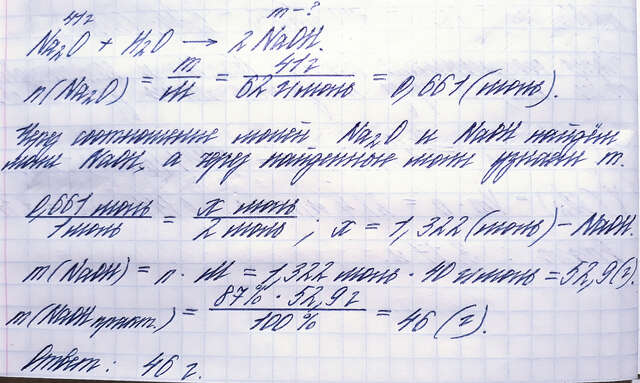 41г m-?
Na₂O + H₂O → 2 NaOH.
n(Na₂O) = m/M = 41г/62 г/моль = 0,661 (моль).
Через соотношение молей Na₂O и NaOH найдём
моли NaOH, а через найденные моли узнаем m.
0,661 моль/1 моль = x моль/2 моль ; x = 1,322 (моль) – NaOH.
m(NaOH) = n · M = 1,322 моль · 40 г/моль = 52,9(г).
m(NaOH практ.) = 87% · 52,9г/100% = 46 (г).
Ответ: 46 г.